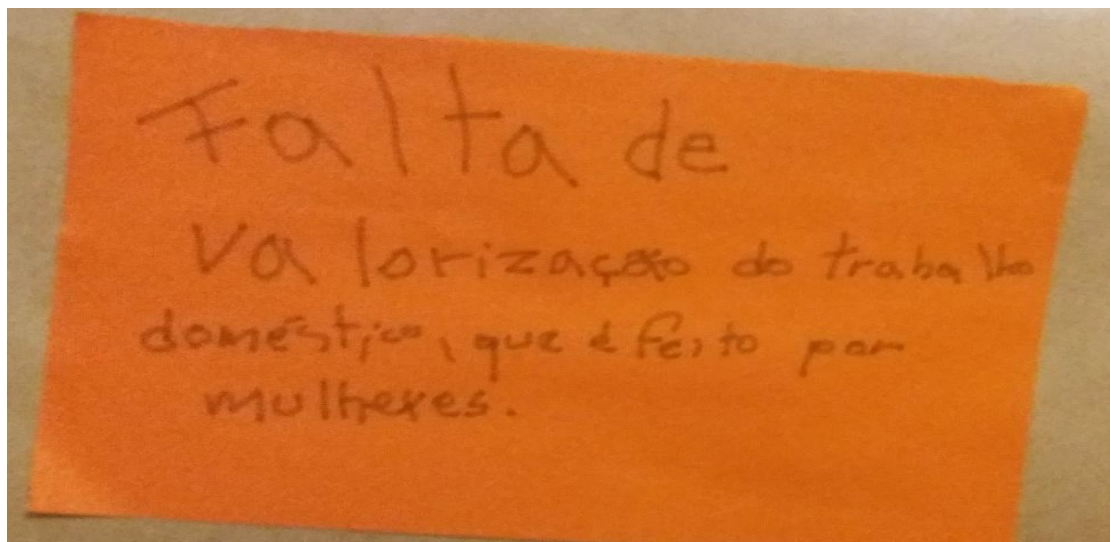 Falta de
valorização do trabalho
doméstico, que é feito por
mulheres.